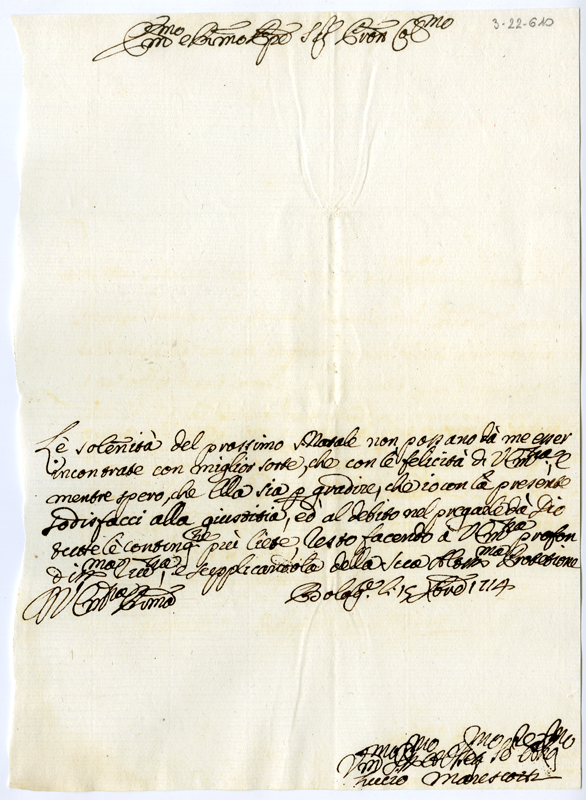 3-22-610
Em̃o e Rm̃o Sig.r Sig.r Pron Col.mo
Le solennità del prossimo Natale non possano dà me esser
incontrate con miglior sorte, che con le felicità di V. Em.za, e
mentre spero, che Ella sia p gradire, che io con la presente
sodisfacci alla giustitia, ed al debito nel pregarle dà Dio
tutte le conting.ze più liete resto facendo à V. Em.za profon
diss.ma riu.za, e supplicandola della sua Aloss.ma Protetione
D V. Em.za Rm̃a Bolog.a li 15 Xbre 1714
Um.mo Dio.mo Oss.mo Se.re
Lucio Marescotti